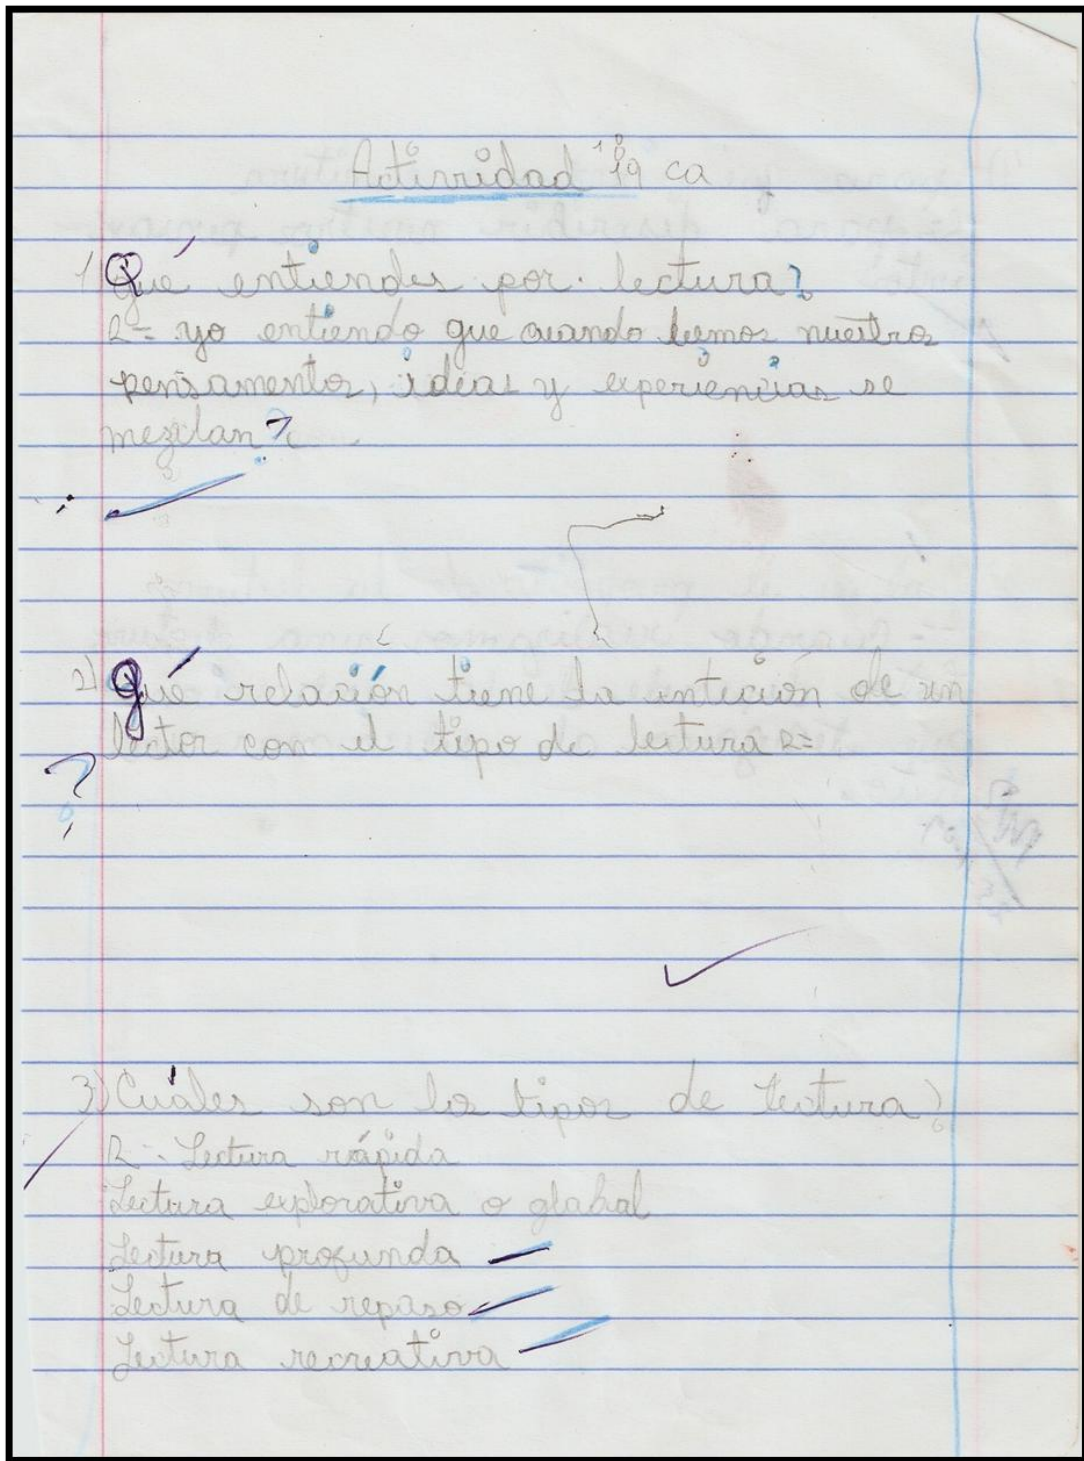 Actividad 19 ca
1) Qué entiendes por lectura?
R= yo entiendo que cuando leemos nuestros
pensamentos, ideas y experiencias se
mezclan
2) Qué relación tiene la inteción de un
lector con el tipo de lectura R=
?
3) Cuáles son los tipos de lectura?
R= Lectura rápida
Lectura explorativa o glabal
Lectura profunda
Lectura de repaso
Lectura recreativa